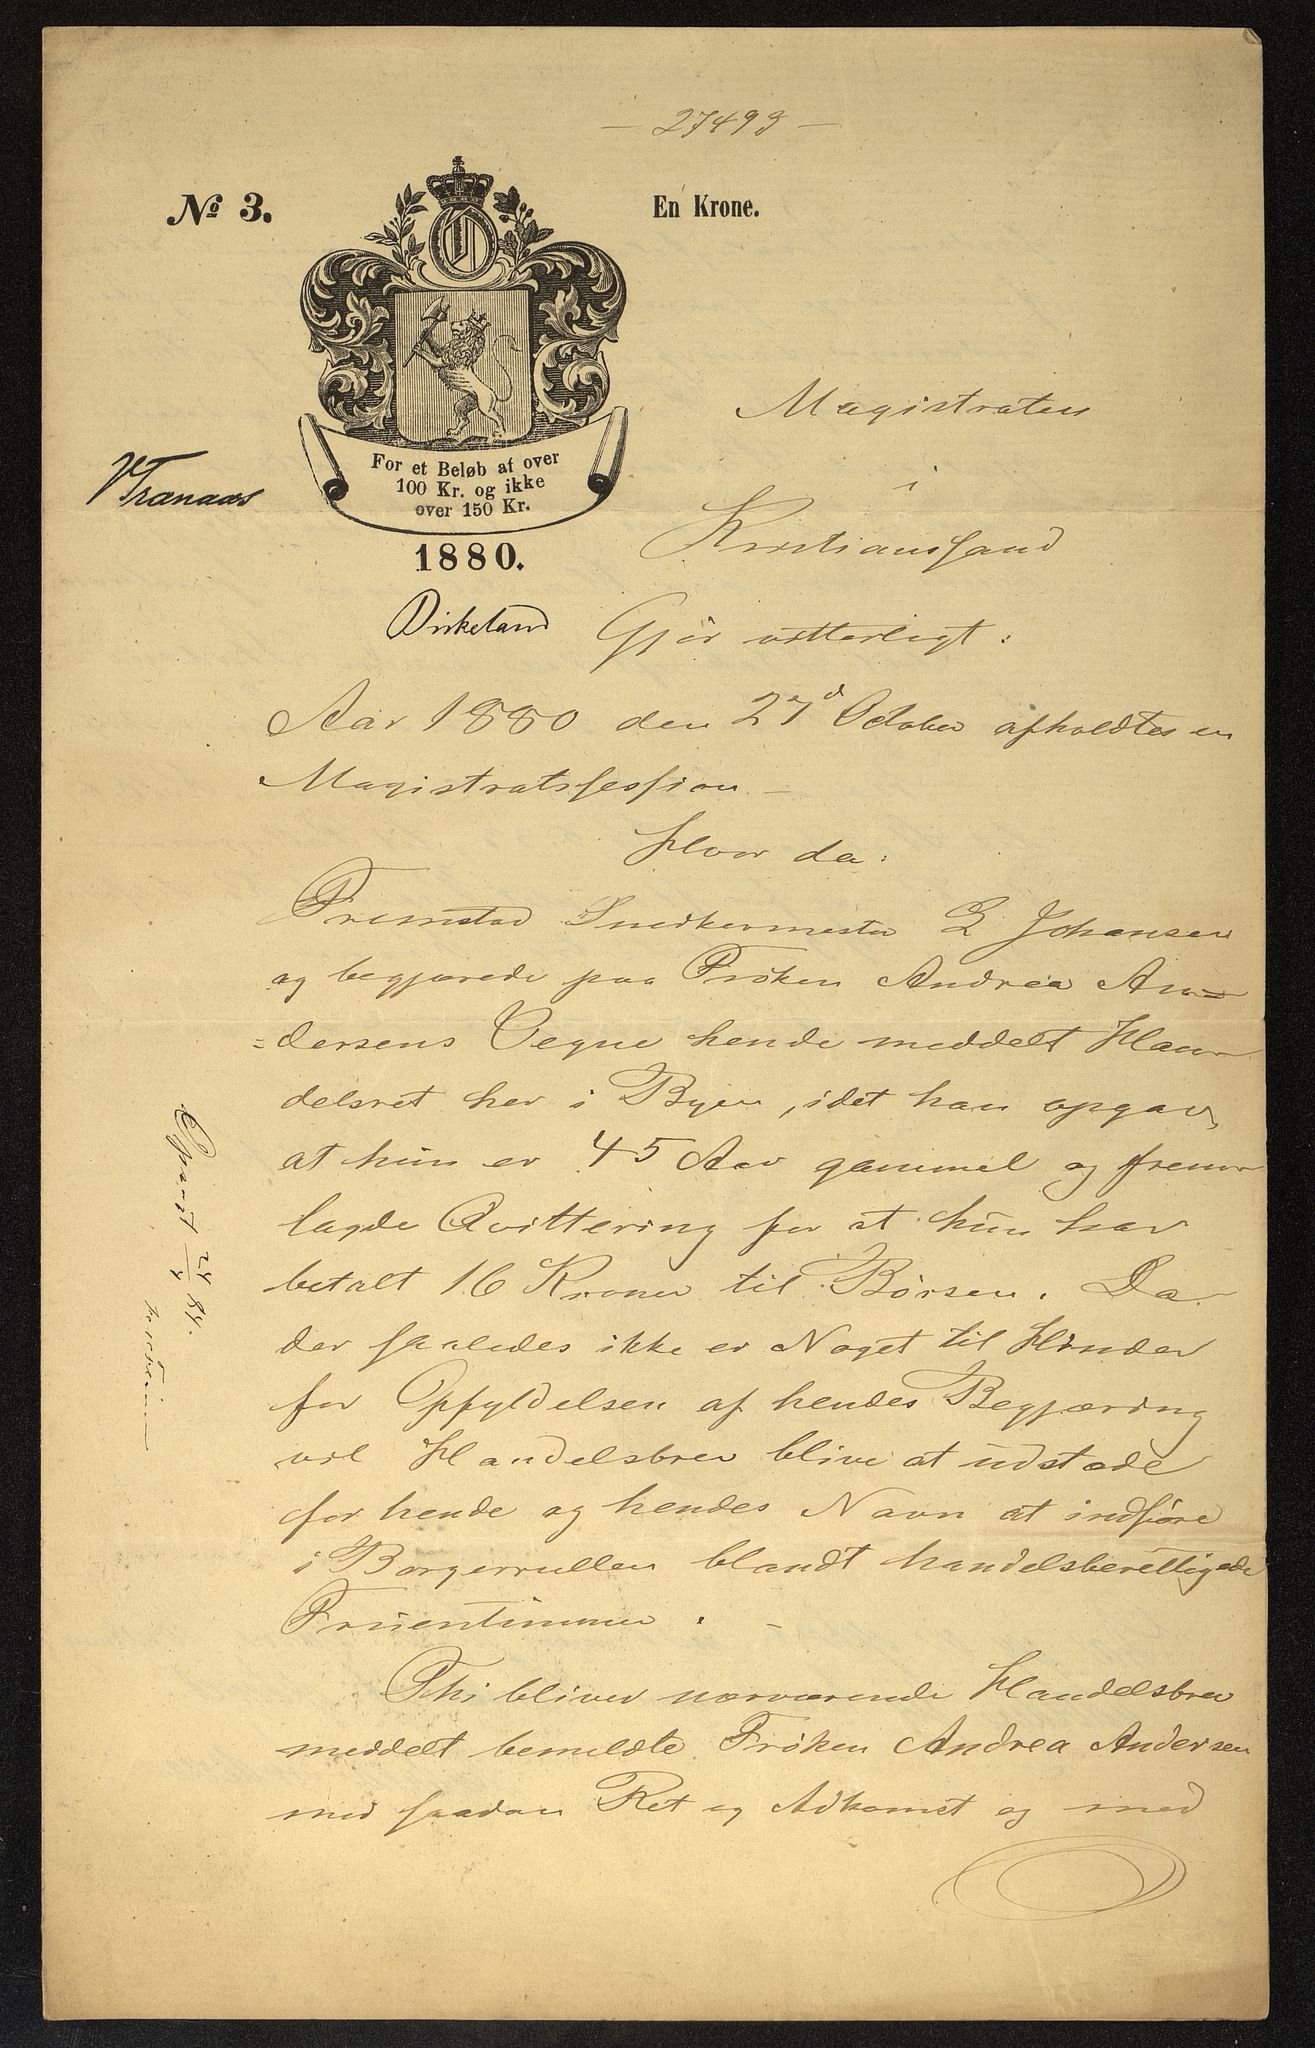 — 27493 —
No 3.
En Krone.
O
For et Beløb af over
100 Kr. og ikke
over 150 Kr.
1880.
VTranaas
Birkeland
Magistraten
i
Kristianssand
Gjør vitterligt:
Aar 1880 den 27d October afholdtes en
Magistratssession —
Hvor da:
Fremstod Snedkermester L Johansen
og begjærede paa Frøken Andrea An-
=dersens Vegne hende meddelt Han-
delsret her i Byen, idet han opgav,
at hun er 45 Aar gammel og frem-
lagde Qvittering for at hun har
betalt 16 Kroner til Børsen. Da
der saaledes ikke er Noget til Hinder
for Opfyldelsen af hendes Begjæring
vil Handelsbrev blive at udstæde
for hende og hendes Navn at indføre
i Borgerrullen blandt handelsberettigede
Fruentimmer. —
Thi bliver nærværende Handelsbrev
meddelt bemeldte Frøken Andrea Andersen
med saadan Ret og Adkomst og med
Opsagt 24/4 84.